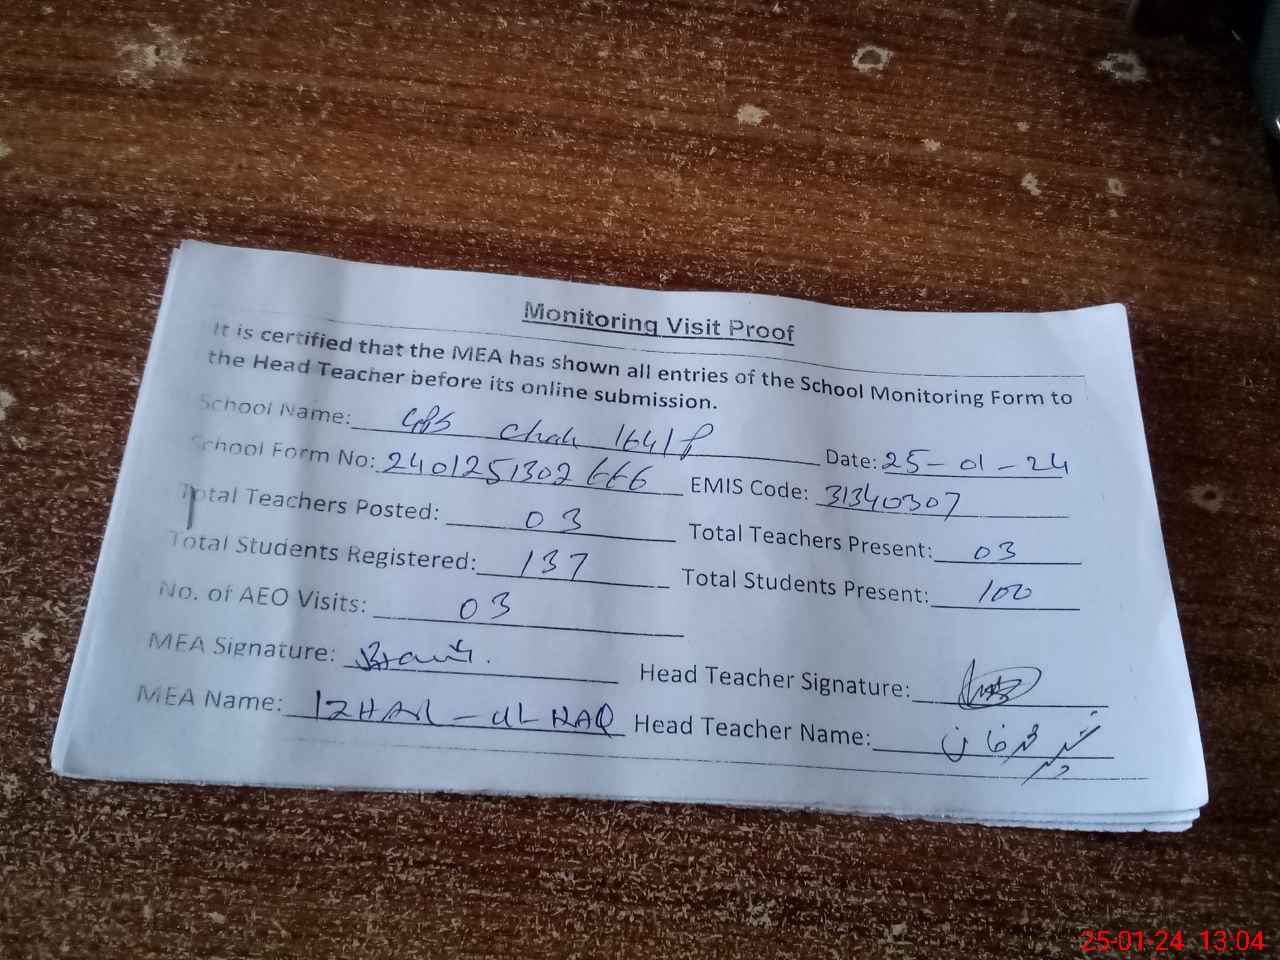 Monitoring Visit Proof
It is certified that the MEA has shown all entries of the School Monitoring Form to
the Head Teacher before its online submission.
School Name: GPS Chak 164/P Date: 25-01-24
School Form No: 2401251302666 EMIS Code: 31340307
Total Teachers Posted: 03 Total Teachers Present: 03
Total Students Registered: 137 Total Students Present: 100
No. of AEO Visits: 03
MEA Signature: Head Teacher Signature:
MEA Name: IZHAR-UL HAQ Head Teacher Name:
25-01-24 13:04